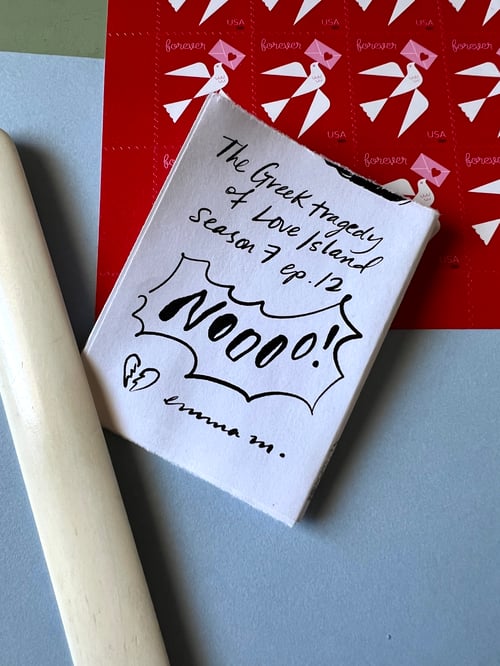 forever
forever
forever
forever
USA
USA
USA
USA
forever
forever
The Greek tragedy
of Love Island
Season 7 ep. 12
NOOOO!
emma m.